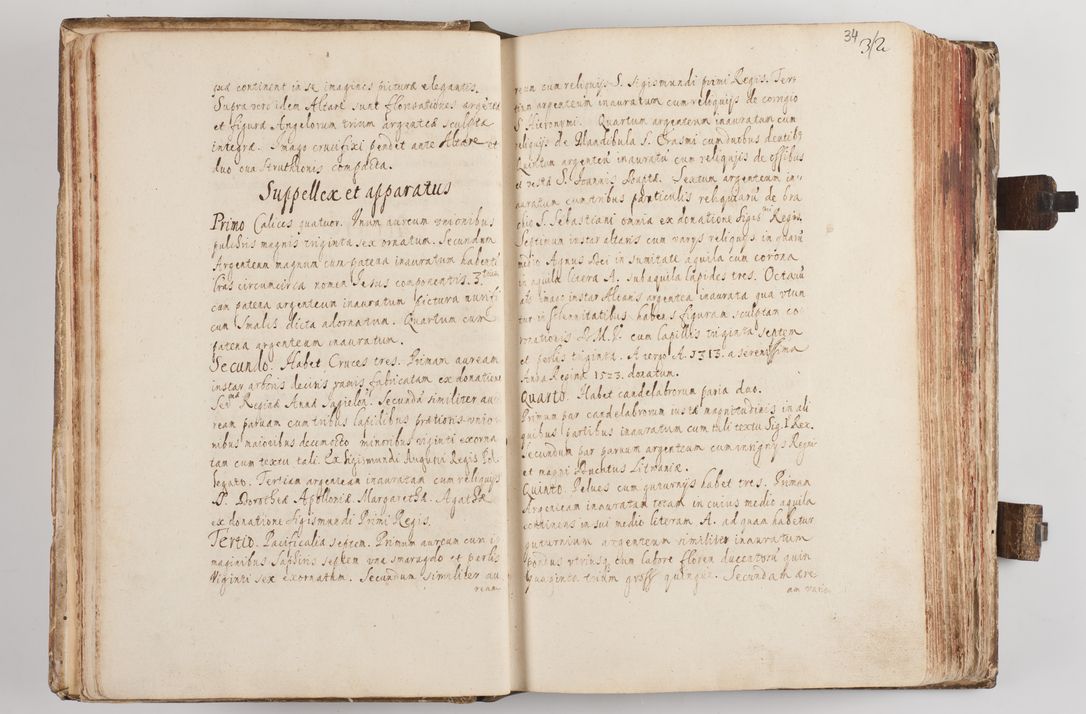 quæ continent in se imagines picturæ elegantes.
Supra vero idem Altare sunt flonsationes argēteæ
et figuræ Angelorum trium argenteæ sculptæ
integræ. Imago crucifixi pendet ante Altare et
duo oua struthionis compacta.
Suppellex et apparatus
Primo Calices quatuor. Vnum aureum vnionibus
pulchris magnis triginta sex ornatum. Secundum
Argenteum magnum cum patena inauratum habenti
lras circumcirca nomen Jesus componentis. 3.tium
cum patena argenteum inauratum pictura
cum Smalis dicta adornatum. Quartum cum
patena argenteum inauratum.
Secundo. Habet Cruces tres. Primam auream
instar arboris decisis ramis fabricatam ex donatione
Ser.mæ Reginæ Annæ Jagielon. Secundā similiter au
ream paruam cum tribus lapilibus prætiosis vnio
nibus maioribus decem octo minoribus viginti exorna
tam cum textu tali. Ex Sigismundi Augusti Regis Pol.
legato. Tertiam argenteam inauratam cum reliquijs
S. Dorotheæ Apolloniæ. Margarethæ. Agathæ
ex donatione Sigismundi Primi Regis.
Tertio. Pacificalia septem. Primum aureum cum i
maginibus Saphiris septem una smaragdo et perlis
Viginti sex exornatum. Secundum similiter au
ream
34 3/2
reum cum reliquijs S. Sigismundi primi Regis. Ter
tium argenteum inauratum cum reliquijs de corrigio
S. Hieronymi. Quartum argenteum inauratum cum
reliquijs de Mandibula S. Erasmi cum duobus dentibq
Quintum argenteū inauratū cum reliquijs de ossibus
et veste S. Joannis Baptæ. Sextum argenteum in
auratum cum tribus particulis reliquiarū de bra
chio S. Sebastiani omnia ex donatione Sigis.di Regis.
Septimum instar altaris cum varys reliquijs in quarū
medio Agnus Dei in sumitate aquila cum corona
in aquila litera A. sub aquila lapides tres. Octauū
instar Altaris argentea inaurata qua vtun
tur in solennitatibus habens figuram sculptam co
ronationis B.M.V. cum lapillis triginta septem
et perlis triginta. A tergo A. 1313. a serenissima
Anna Regina 1523. donatum.
Quarto. Habet candelabrorum paria duo.
Primum par candelabrorum iusta magnitudinis in ali
quibus partibus inauratum cum tali textu Sig. I. Rex.
Secundum par paruum argenteum cum insignijs Regni
et magni Duchtus Litvaniæ.
Quinto. Pelues cum guturnijs habet tres. Primam
Argenteam inauratam totam in cuius medio aquila
continens in sui medio literam A. ad quam habetur
guturnium argenteum similiter inauratum
Pondus vtriusq cum labore floren ducentorū quin
quaginta trium gross quinque. Secundam ære
am